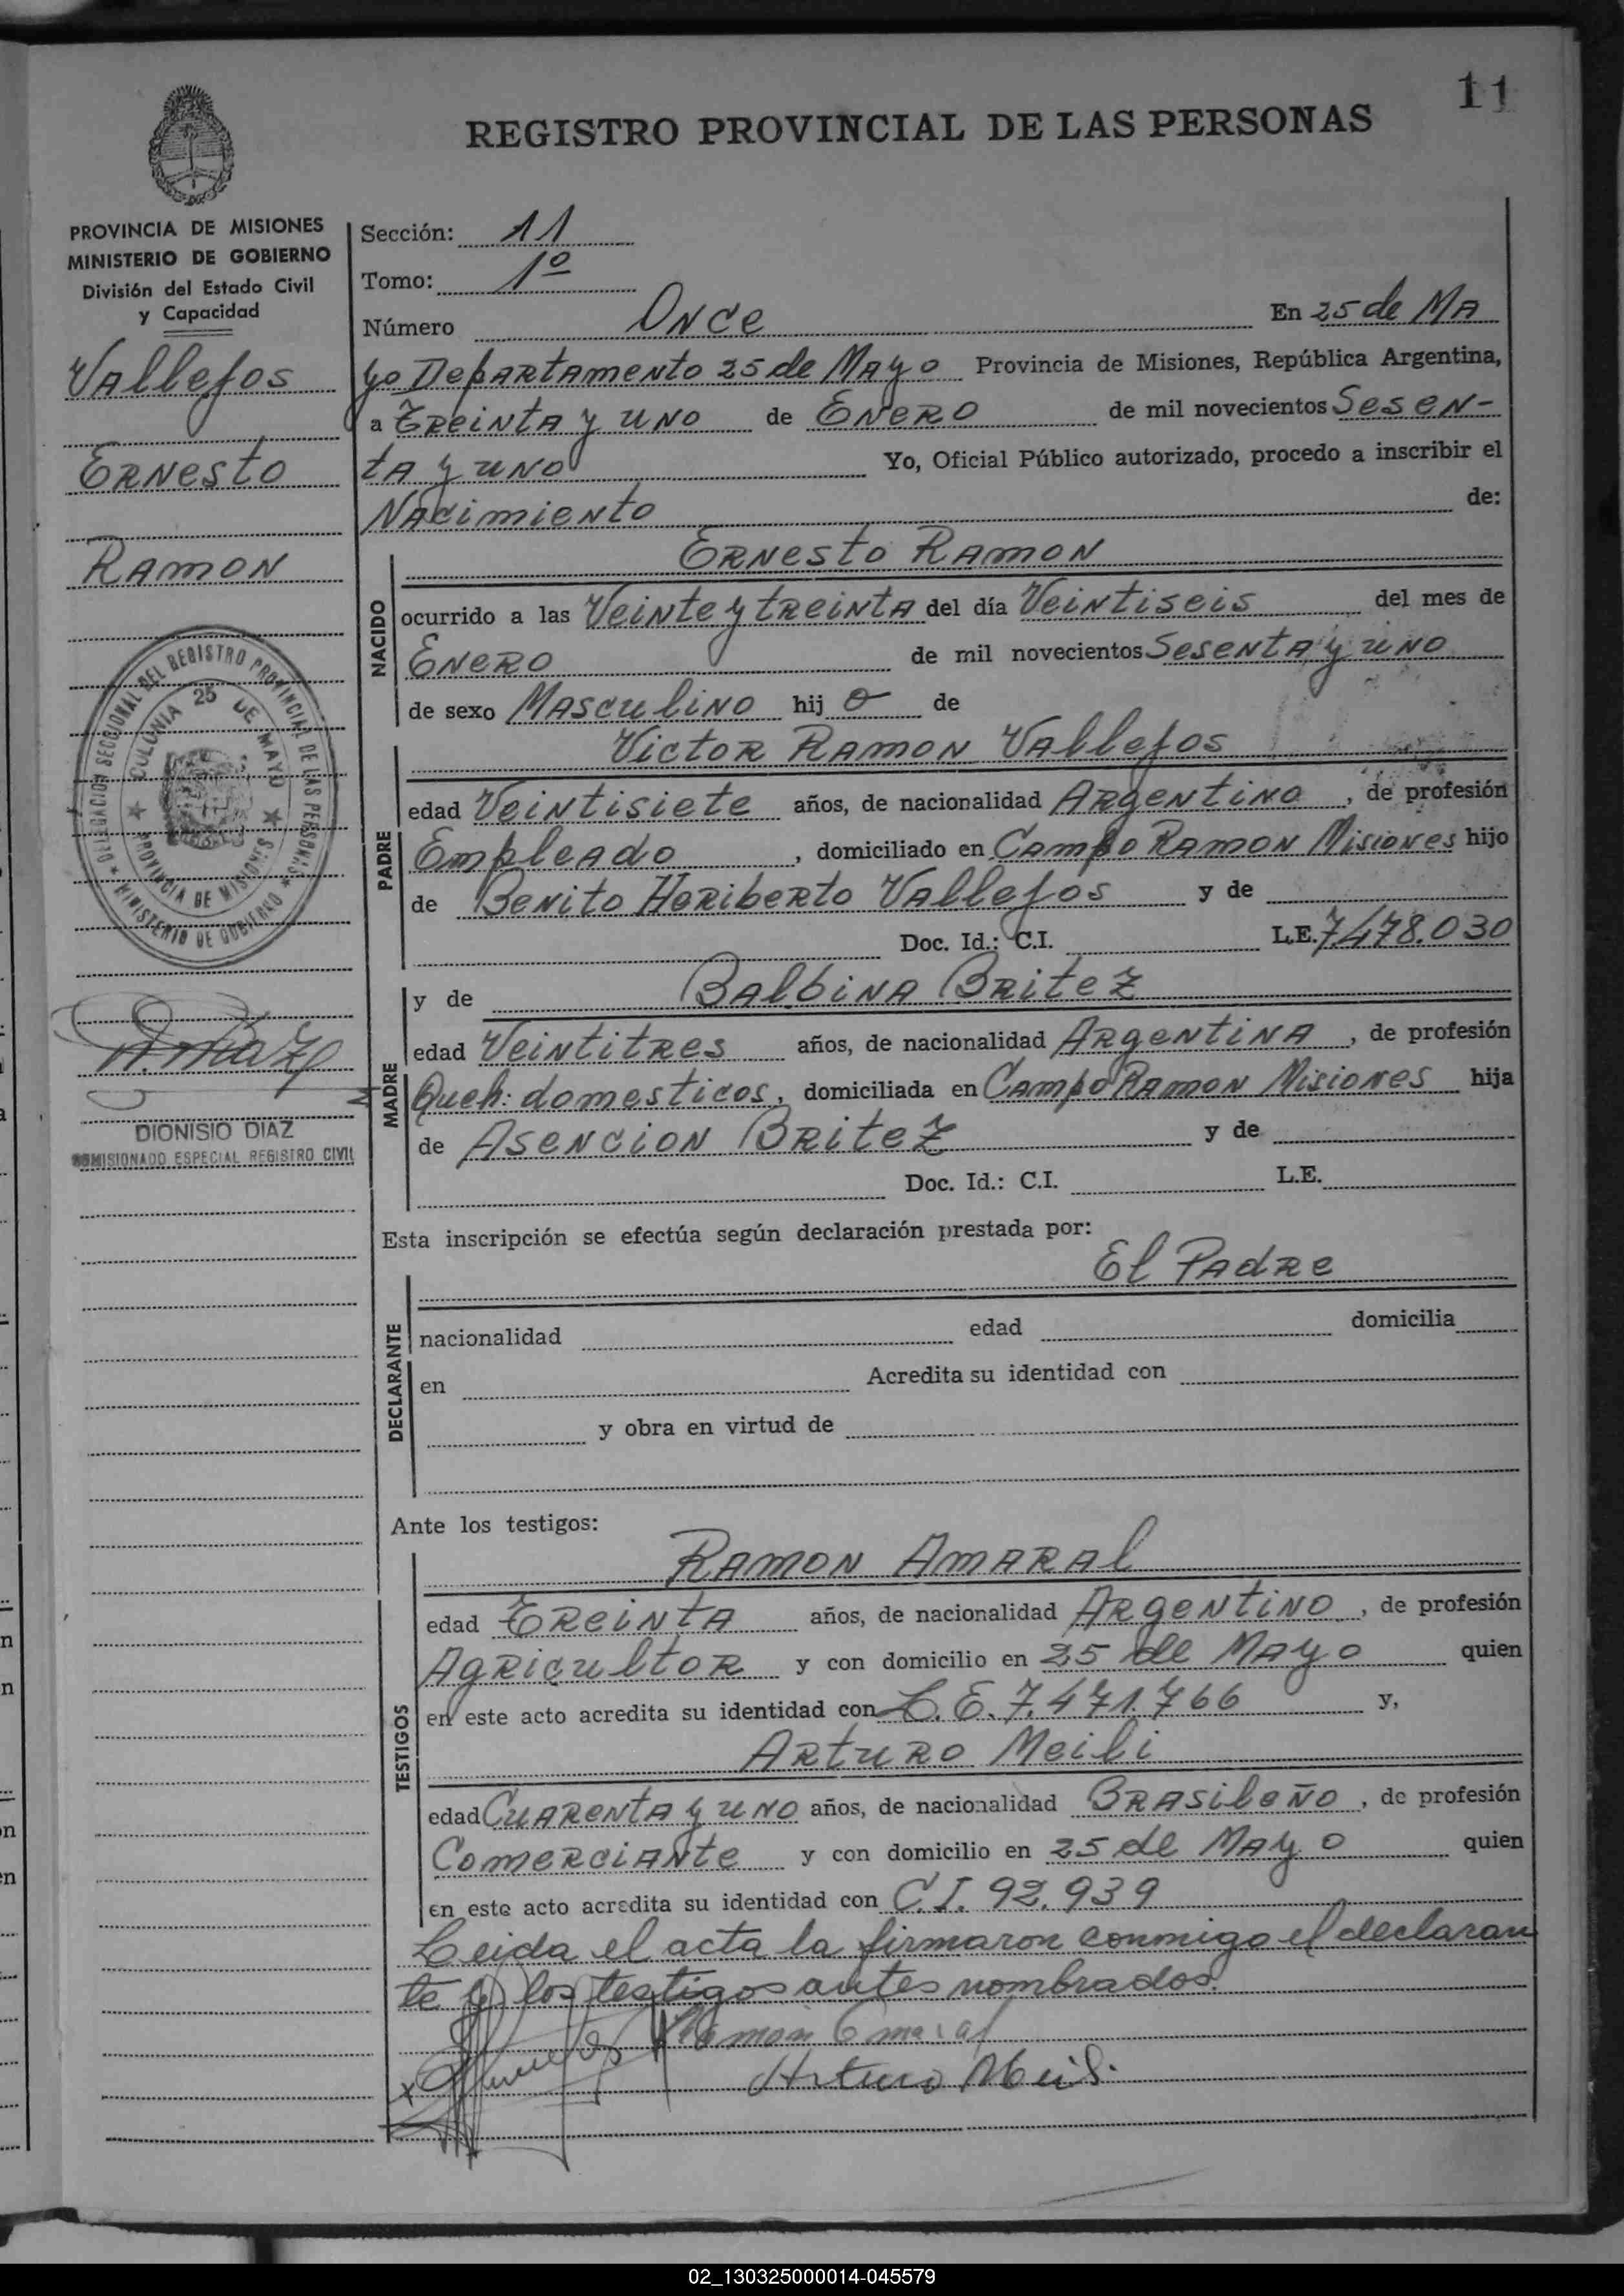 11
REGISTRO PROVINCIAL DE LAS PERSONAS
PROVINCIA DE MISIONES
MINISTERIO DE GOBIERNO
División del Estado Civil
y Capacidad
Vallejos
Ernesto
Ramon
DELEGACION SECCIONAL DEL REGISTRO PROVINCIAL DE LAS PERSONAS
★ MINISTERIO DE GOBIERNO ★
COLONIA 25 DE MAYO
★ PROVINCIA DE MISIONES ★
DIONISIO DIAZ
COMISIONADO ESPECIAL REGISTRO CIVIL
Sección: 11
Tomo: 1º
Número Once En 25 de Ma
yo Departamento 25 de Mayo Provincia de Misiones, República Argentina,
a Treinta y uno de Enero de mil novecientos Sesen-
ta y uno Yo, Oficial Público autorizado, procedo a inscribir el
Nacimiento de:
NACIDO
Ernesto Ramon
ocurrido a las Veinte y treinta del día Veintiseis del mes de
Enero de mil novecientos Sesenta y uno
de sexo Masculino hij o de
PADRE
Victor Ramon Vallejos
edad Veintisiete años, de nacionalidad Argentino, de profesión
Empleado, domiciliado en Campo Ramon Misiones hijo
de Benito Heriberto Vallejos y de
Doc. Id.: C.I. L.E. 7.478.030
MADRE
y de Balbina Britez
edad Veintitres años, de nacionalidad Argentina, de profesión
Queh: domesticos, domiciliada en Campo Ramon Misiones hija
de Asencion Britez y de
Doc. Id.: C.I. L.E.
Esta inscripción se efectúa según declaración prestada por:
DECLARANTE
El Padre
nacionalidad edad domicilia
en Acredita su identidad con
y obra en virtud de
Ante los testigos:
TESTIGOS
Ramon Amaral
edad Treinta años, de nacionalidad Argentino, de profesión
Agricultor y con domicilio en 25 de Mayo quien
en este acto acredita su identidad con L.E. 7.471.766 y,
Arturo Meili
edad Cuarenta y uno años, de nacionalidad Brasileño, de profesión
Comerciante y con domicilio en 25 de Mayo quien
en este acto acredita su identidad con C.I. 92.939
Leida el acta la firmaron conmigo el declaran
te y los testigos antes nombrados.
Arturo Meili
02_130325000014-045579